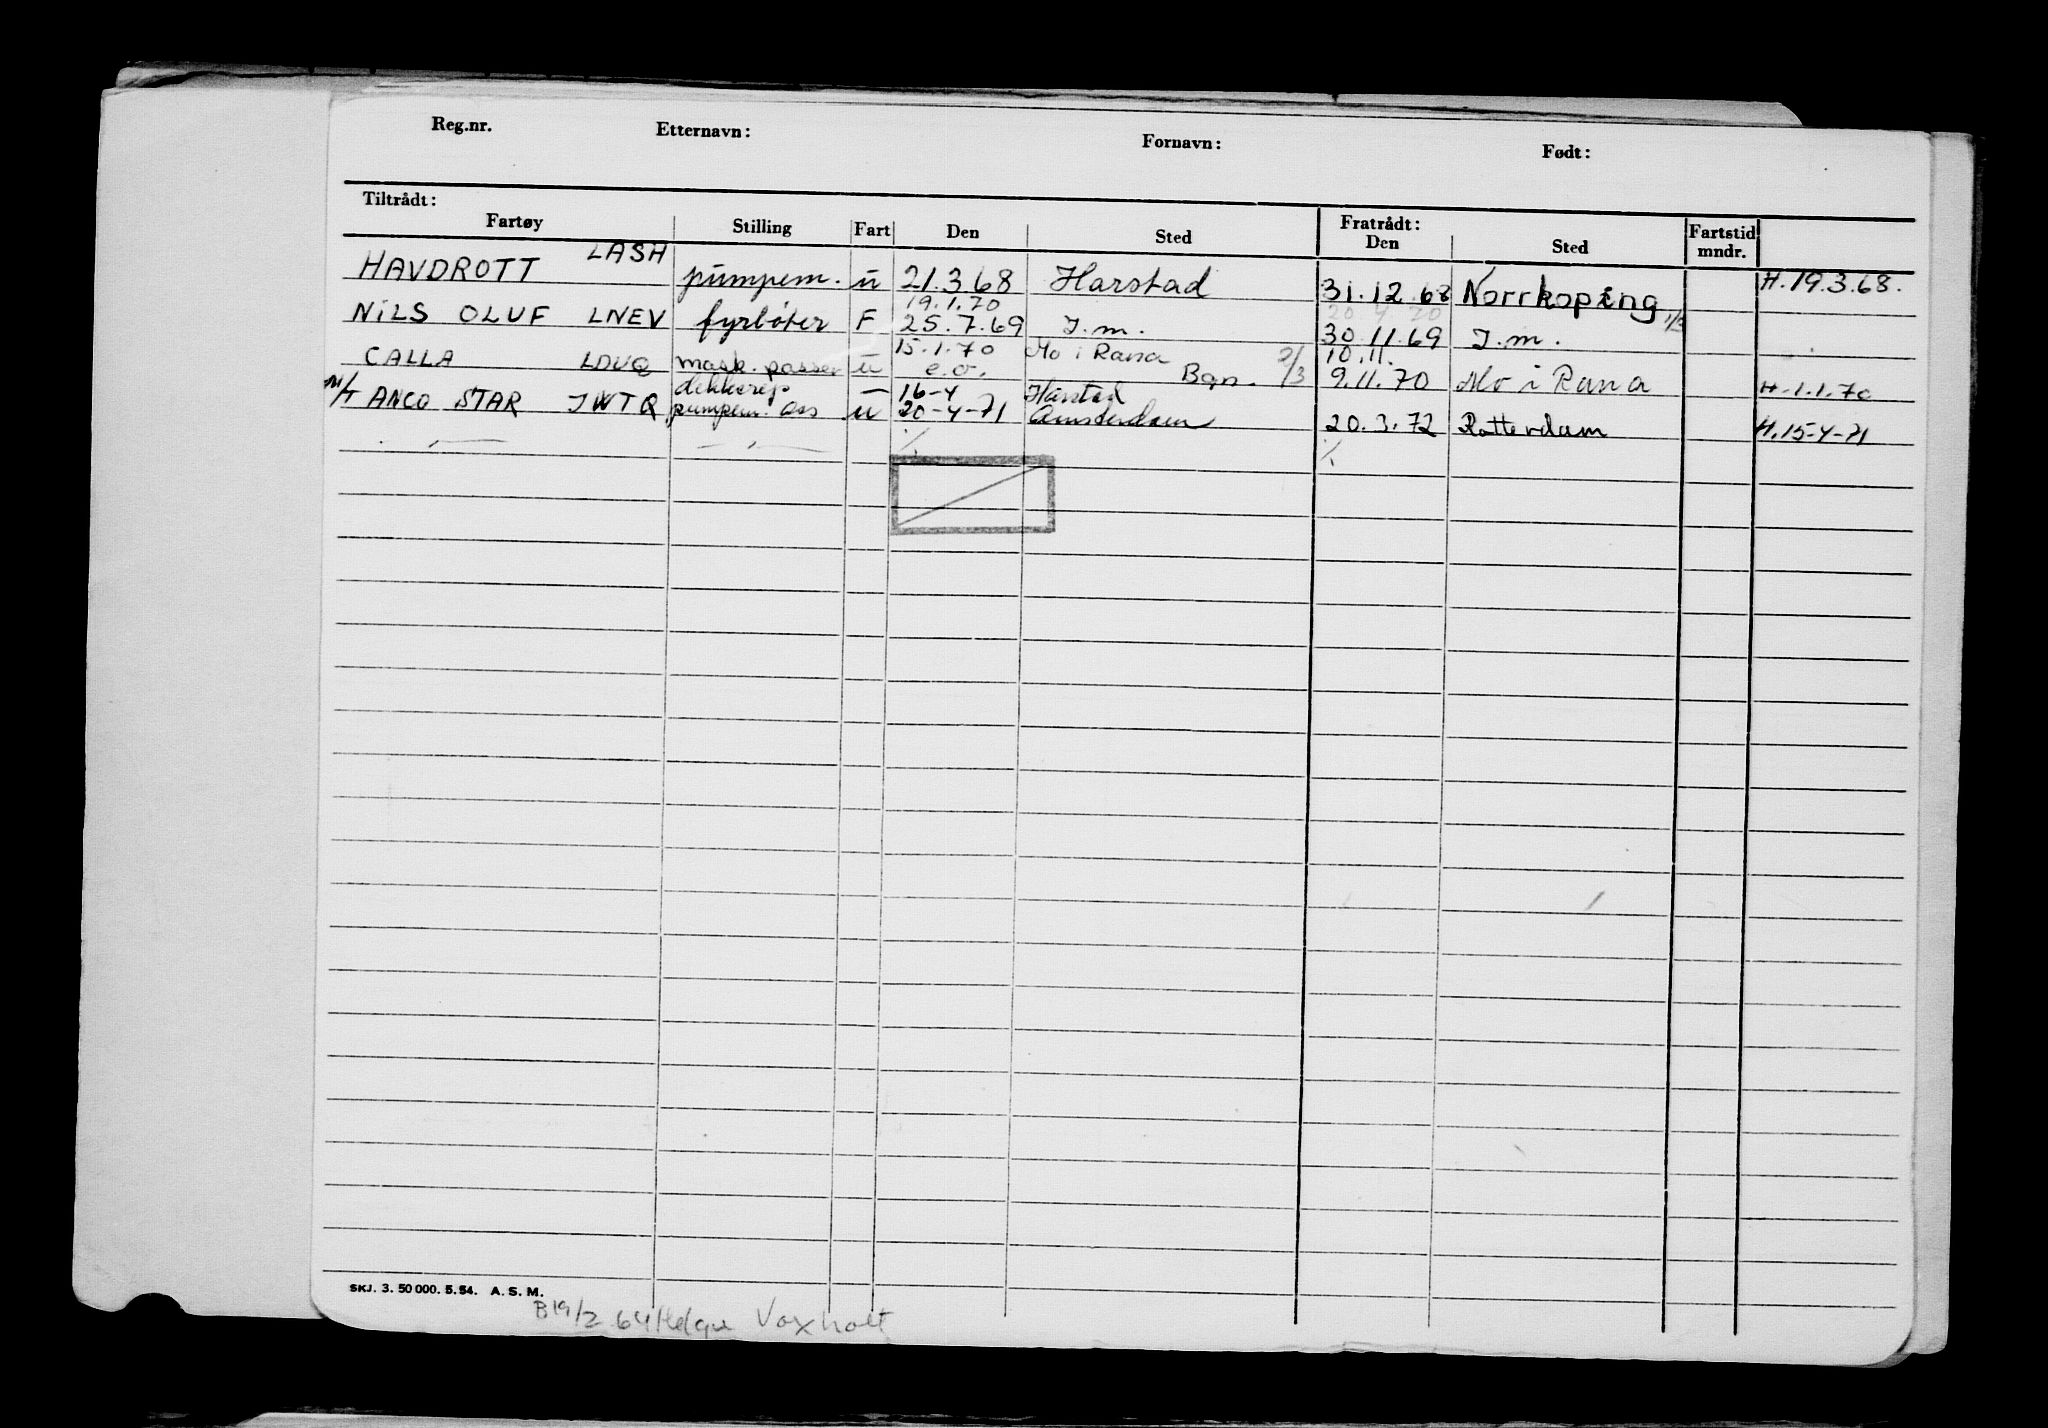 Reg.nr. Etternavn: Fornavn: Født:
Tiltrådt: Fratrådt:
Fartøy Stilling Fart Den Sted Den Sted Fartstid mndr.
HAVDROTT LASH pumpem. u 21.3.68 Harstad 31.12.68 Norrkoping H.19.3.68.
19.1.70 20.4.70
NiLS OLUF LNEV fyrbøter F 25.7.69 J.m. 30.11.69 J.m. 1/3
15.1.70 Mo i Rana 10.11.
CALLA LDUQ mask.passer u e.o. Bgn. 2/3 9.11.70 Mo i Rana H-1.1.70
dekksrep — 16-4 Harstad
M/T ANCO STAR JWTQ pumpem. ass u 20-4-71 Amsterdam 20.3.72 Rotterdam H.15-4-71
— " — — " — ·/. ·/.
SKJ. 3. 50 000. 5.54. A. S. M.
B19/2 64 Helge Voxholt